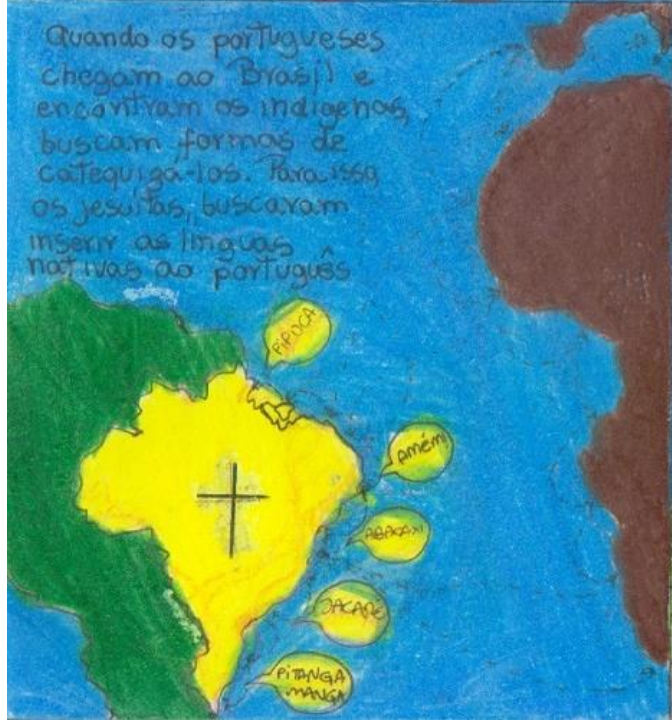 Quando os portugueses
chegam ao Brasil e
encontram os indígenas,
buscam formas de
catequizá-los. Para isso,
os jesuítas, buscaram
inserir as línguas
nativas ao português
PIPOCA
AMÉM!
ABACAXI
JACARÉ
PITANGA
MANGA